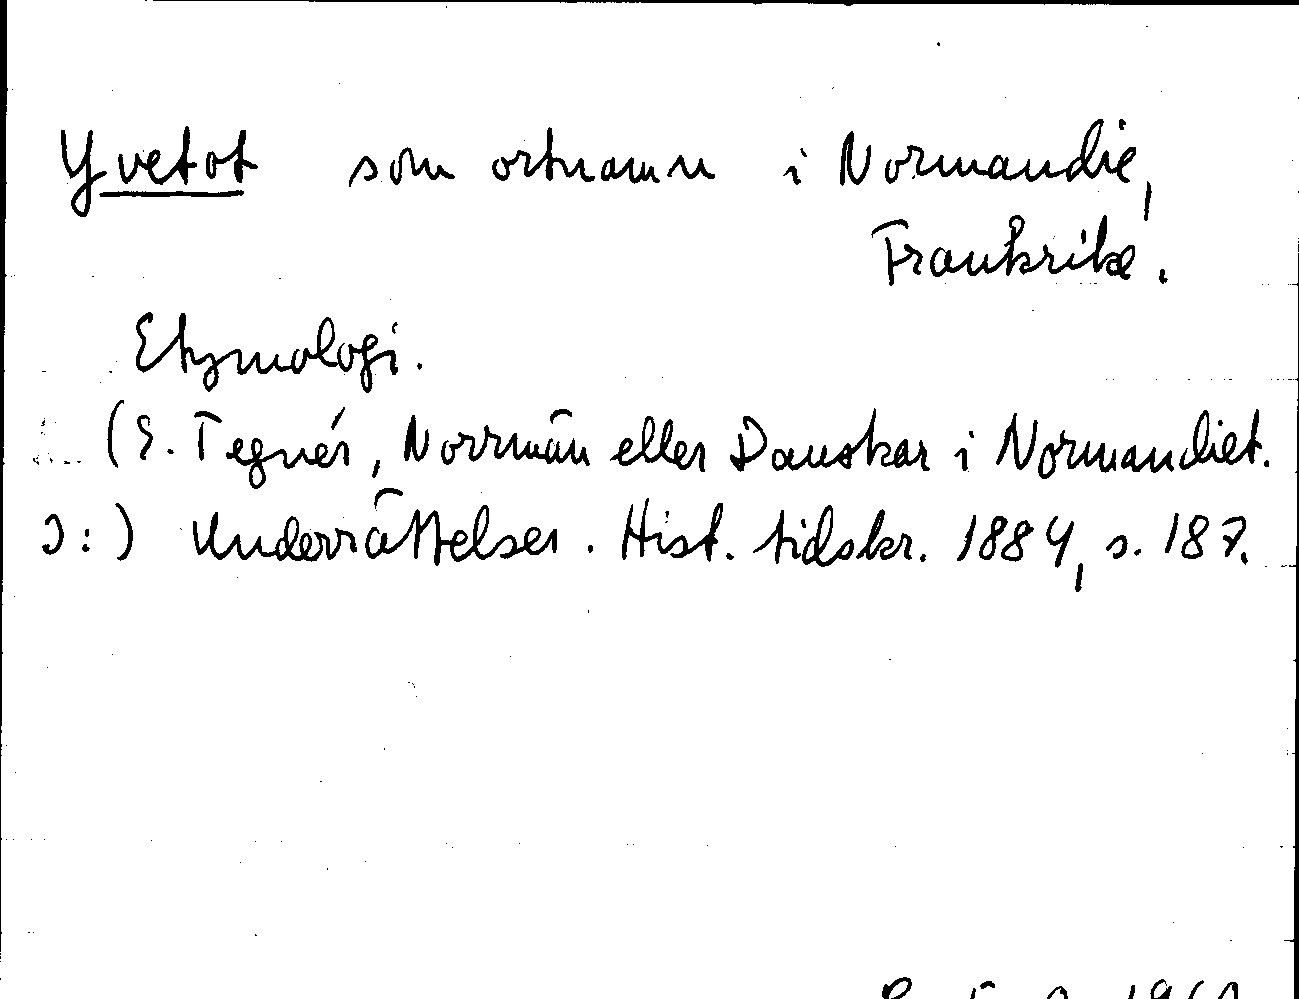 Yvetot som ortnamn i Normandie,
Frankrike.
Etymologi.
(E. Tegnér, Norrmän eller Danskar i Normandiet.
ɔ:) Underrättelser. Hist. tidskr. 1884, s. 187.